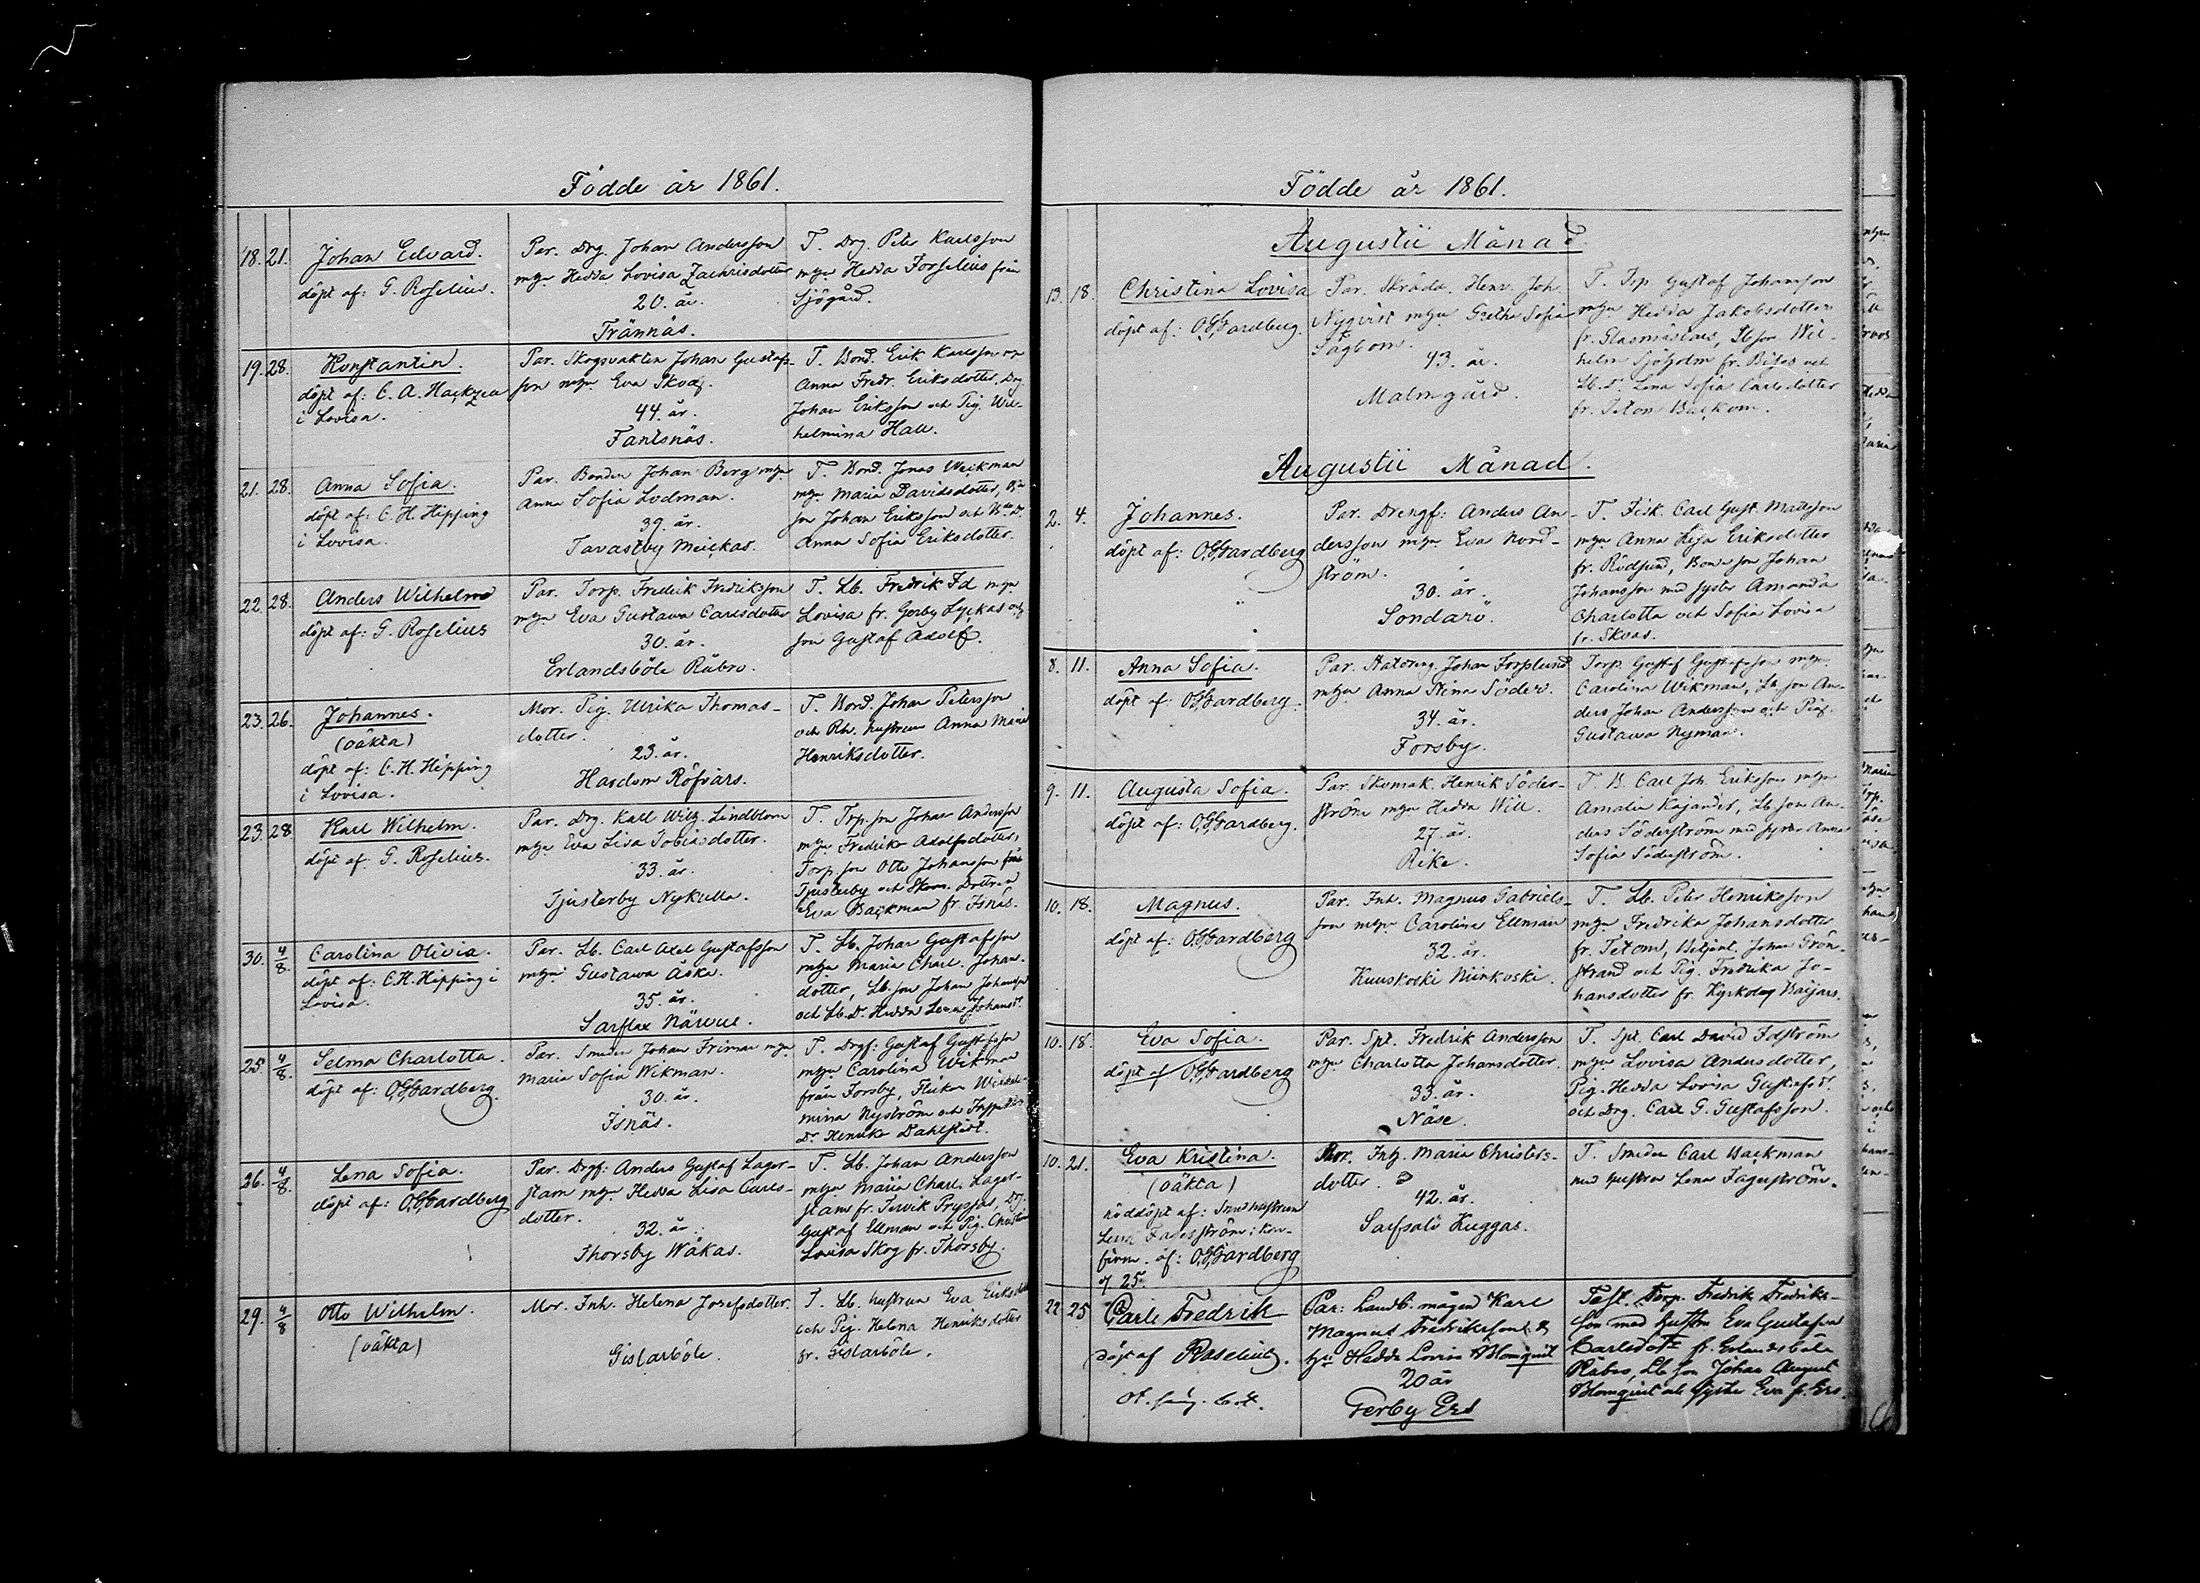 Födde år 1861.
18. 21. Johan Edvard.
döpt af: G. Roselius.
Par. Drg Johan Andersson
mga Hedda Lovisa Zachrisdotter
20. år.
Trännäs.
T. Drg. Peter Karlsson
mga Hedda Forselius från
Sjögård.
19. 28. Konstantin.
döpt af: C. A. Hackzell
i Lovisa.
Par. Skogvakten Johan Gustafs-
son mga Eva Skog.
44. år.
Fantsnäs.
T. Bond. Erik Karlsson
Anna Fredr. Eriksdotter, Drg
Johan Eriksson och Pig. Wil-
helmina Hall.
21. 28. Anna Sofia.
döpt af: C. H. Hipping
i Lovisa.
Par. Bonden Johan Berg mga
Anna Sofia Lodman.
39. år.
Tavastby Meickas.
T. Bond. Jonas Weckman
mga Maria Davidsdotter,
son Johan Eriksson och
Anna Sofia Eriksdotter.
22. 28. Anders Wilhelm
döpt af: G. Roselius
Par. Torp. Fredrik Fredriksson
mga Eva Gustava Carlsdotter
30. år.
Erlandsböle Råbro.
T. Lb. Fredrik Fd mga
Lovisa fr. Gerby Lyckas och
son Gustaf Adolf.
23. 26. Johannes.
(oäkta)
döpt af: C. H. Hipping
i Lovisa.
Mor. Pig. Ulrika Thomas-
dotter.
23. år.
Hardom Röfvars.
T. Bond. Johan Petersson
och Rh. hustrun Anna Maria
Henriksdotter.
23. 28. Karl Wilhelm.
döpt af G. Roselius.
Par. Drg. Karl Wilh. Lindblom
mga Eva Lisa Tobiasdotter.
33. år.
Tjusterby Nykulla.
T. Trp. son Johan Andersson
mga Fredrika Adolfsdotter,
Torp. son Otto Johansson från
Tjusterby och Skom. Dottren
Eva Backman fr. Isnäs.
30. 4/8. Carolina Olivia.
döpt af: C. H. Hipping i
Lovisa.
Par. Lb. Carl Axel Gustafsson
mga Gustava Aska.
35. år.
Sarflax Närvus.
T. Lb. Johan Gustafsson
mga Maria Charl. Johan-
dotter, Lb. son Johan Johansson
och Lb. D. Hedda Lovisa Johansd.
25. 4/8. Selma Charlotta.
döpt af: O. G. Gardberg
Par. Smeden Johan Friman mga
Maria Sofia Wikman.
30. år.
Isnäs.
T. Drgf: Gustaf Gustafsson
mga Carolina Wikman
från Forsby, Flickan Wilhel-
mina Nyström och Inspektor
D. Henrika Dahlstedt.
26. 4/8. Lena Sofia.
döpt af: O. G. Gardberg
Par. Drgf: Anders Gustaf Lager-
stam mga Hedda Lisa Carls-
dotter.
32. år.
Thorsby Wåkas.
T. Lb. Johan Andersson
mga Maria Charl. Lager-
stam fr. Tervik Pryssas, Drg.
Gustaf Ellman och Pig. Christina
Lovisa Skog fr. Thorsby.
29. 4/8 Otto Wilhelm.
(oäkta)
Mor. Inh. Helena Josefsdotter.
Gislarböle.
T. Lb. hustrun Eva Eriksdotter
och Pig. Helena Henriksdotter
fr. Gislarböle.
Födde år 1861.
Augustii Månad.
13. 18. Christina Lovisa
döpt af: O. G. Gardberg.
Par. Skrädd. Henr. Joh.
Nyqvist mga Gretha Sofia
Sågbom.
43. år.
Malmgård.
T. Trp. Gustaf Johansson
mga Hedda Jakobsdotter
fr. Glasmästars, Lb son Wil-
helm Sjöholm fr. Bisas och
Lb. D. Lena Sofia Carlsdotter
fr. Tetom Backom.
Augustii Månad.
2. 4. Johannes.
döpt af: O. G. Gardberg
Par. Drengf: Anders An-
dersson mga Eva Nord-
ström.
30. år.
Sondarö.
T. Fisk. Carl Gust. Mattsson
mga Anna Lisa Eriksdotter
fr. Rödsund, Bonde son Johan
Johansson med syster Amanda
Charlotta och Sofia Lovisa
fr. Skvas.
8. 11. Anna Sofia.
döpt af: O. G. Gardberg.
Par. Johan Forsslund
mga Anna Nina Söder.
34. år.
Forsby.
Torp Gustaf Gustafsson mga
Carolina Wikman, Lb. son An-
ders Johan Andersson och Pig.
Gustava Nyman.
9. 11. Augusta Sofia.
döpt af: O. G. Gardberg.
Par. Skomak. Henrik Söder-
ström mga Hedda Will.
27. år.
Rike.
T. B. Carl Joh. Eriksson mga
Amalia Kajander, Lb. son An-
ders Söderström med syster Anna
Sofia Söderström.
10. 18. Magnus.
döpt af: O. G. Gardberg
Par. Inh. Magnus Gabriels-
son mga Carolina Ellman
32. år.
Kuuskoski Niinkoski.
T. Lb. Peter Henriksson
mga Fredrika Johansdotter
fr. Tetom, Betjent. Johan Grön-
strand och Pig. Fredrika Jo-
hansdotter fr. Kyrkoby Baijars.
10. 18. Eva Sofia.
döpt af O. G. Gardberg
Par. Spt. Fredrik Andersson
mga Charlotta Johansdotter.
33. år.
Näse.
T. Spt. Carl David Idström
mga Lovisa Andersdotter,
Pig. Hedda Lovisa Gustafsd.
och Drg. Carl G. Gustafsson.
10. 21. Eva Kristina.
(oäkta)
nöddöpt af: Smedhustrun
Lena Fagerström; kon-
firm. af: O. G. Gardberg
d. 25.
Mor. Inh. Maria Christers-
dotter.
42. år.
Sarfsalö Kuggas.
T. Smeden Carl Backman
med hustrun Lena Fagerström.
22. 25 Carl Fredrik
döpt af Roselius.
Par: Landb. mågen Karl
Magnus Fredriksson &
hu Hedda Lovisa Blomqvist
20 år
Gerby Ers
Test. Torp. Fredrik Fredriks-
son med hustru Eva Gustafva
Carlsdotr fr. Erlandsböle
Råbro, Lb. son Johan August
Blomqvist och syster Eva fr. Ers.